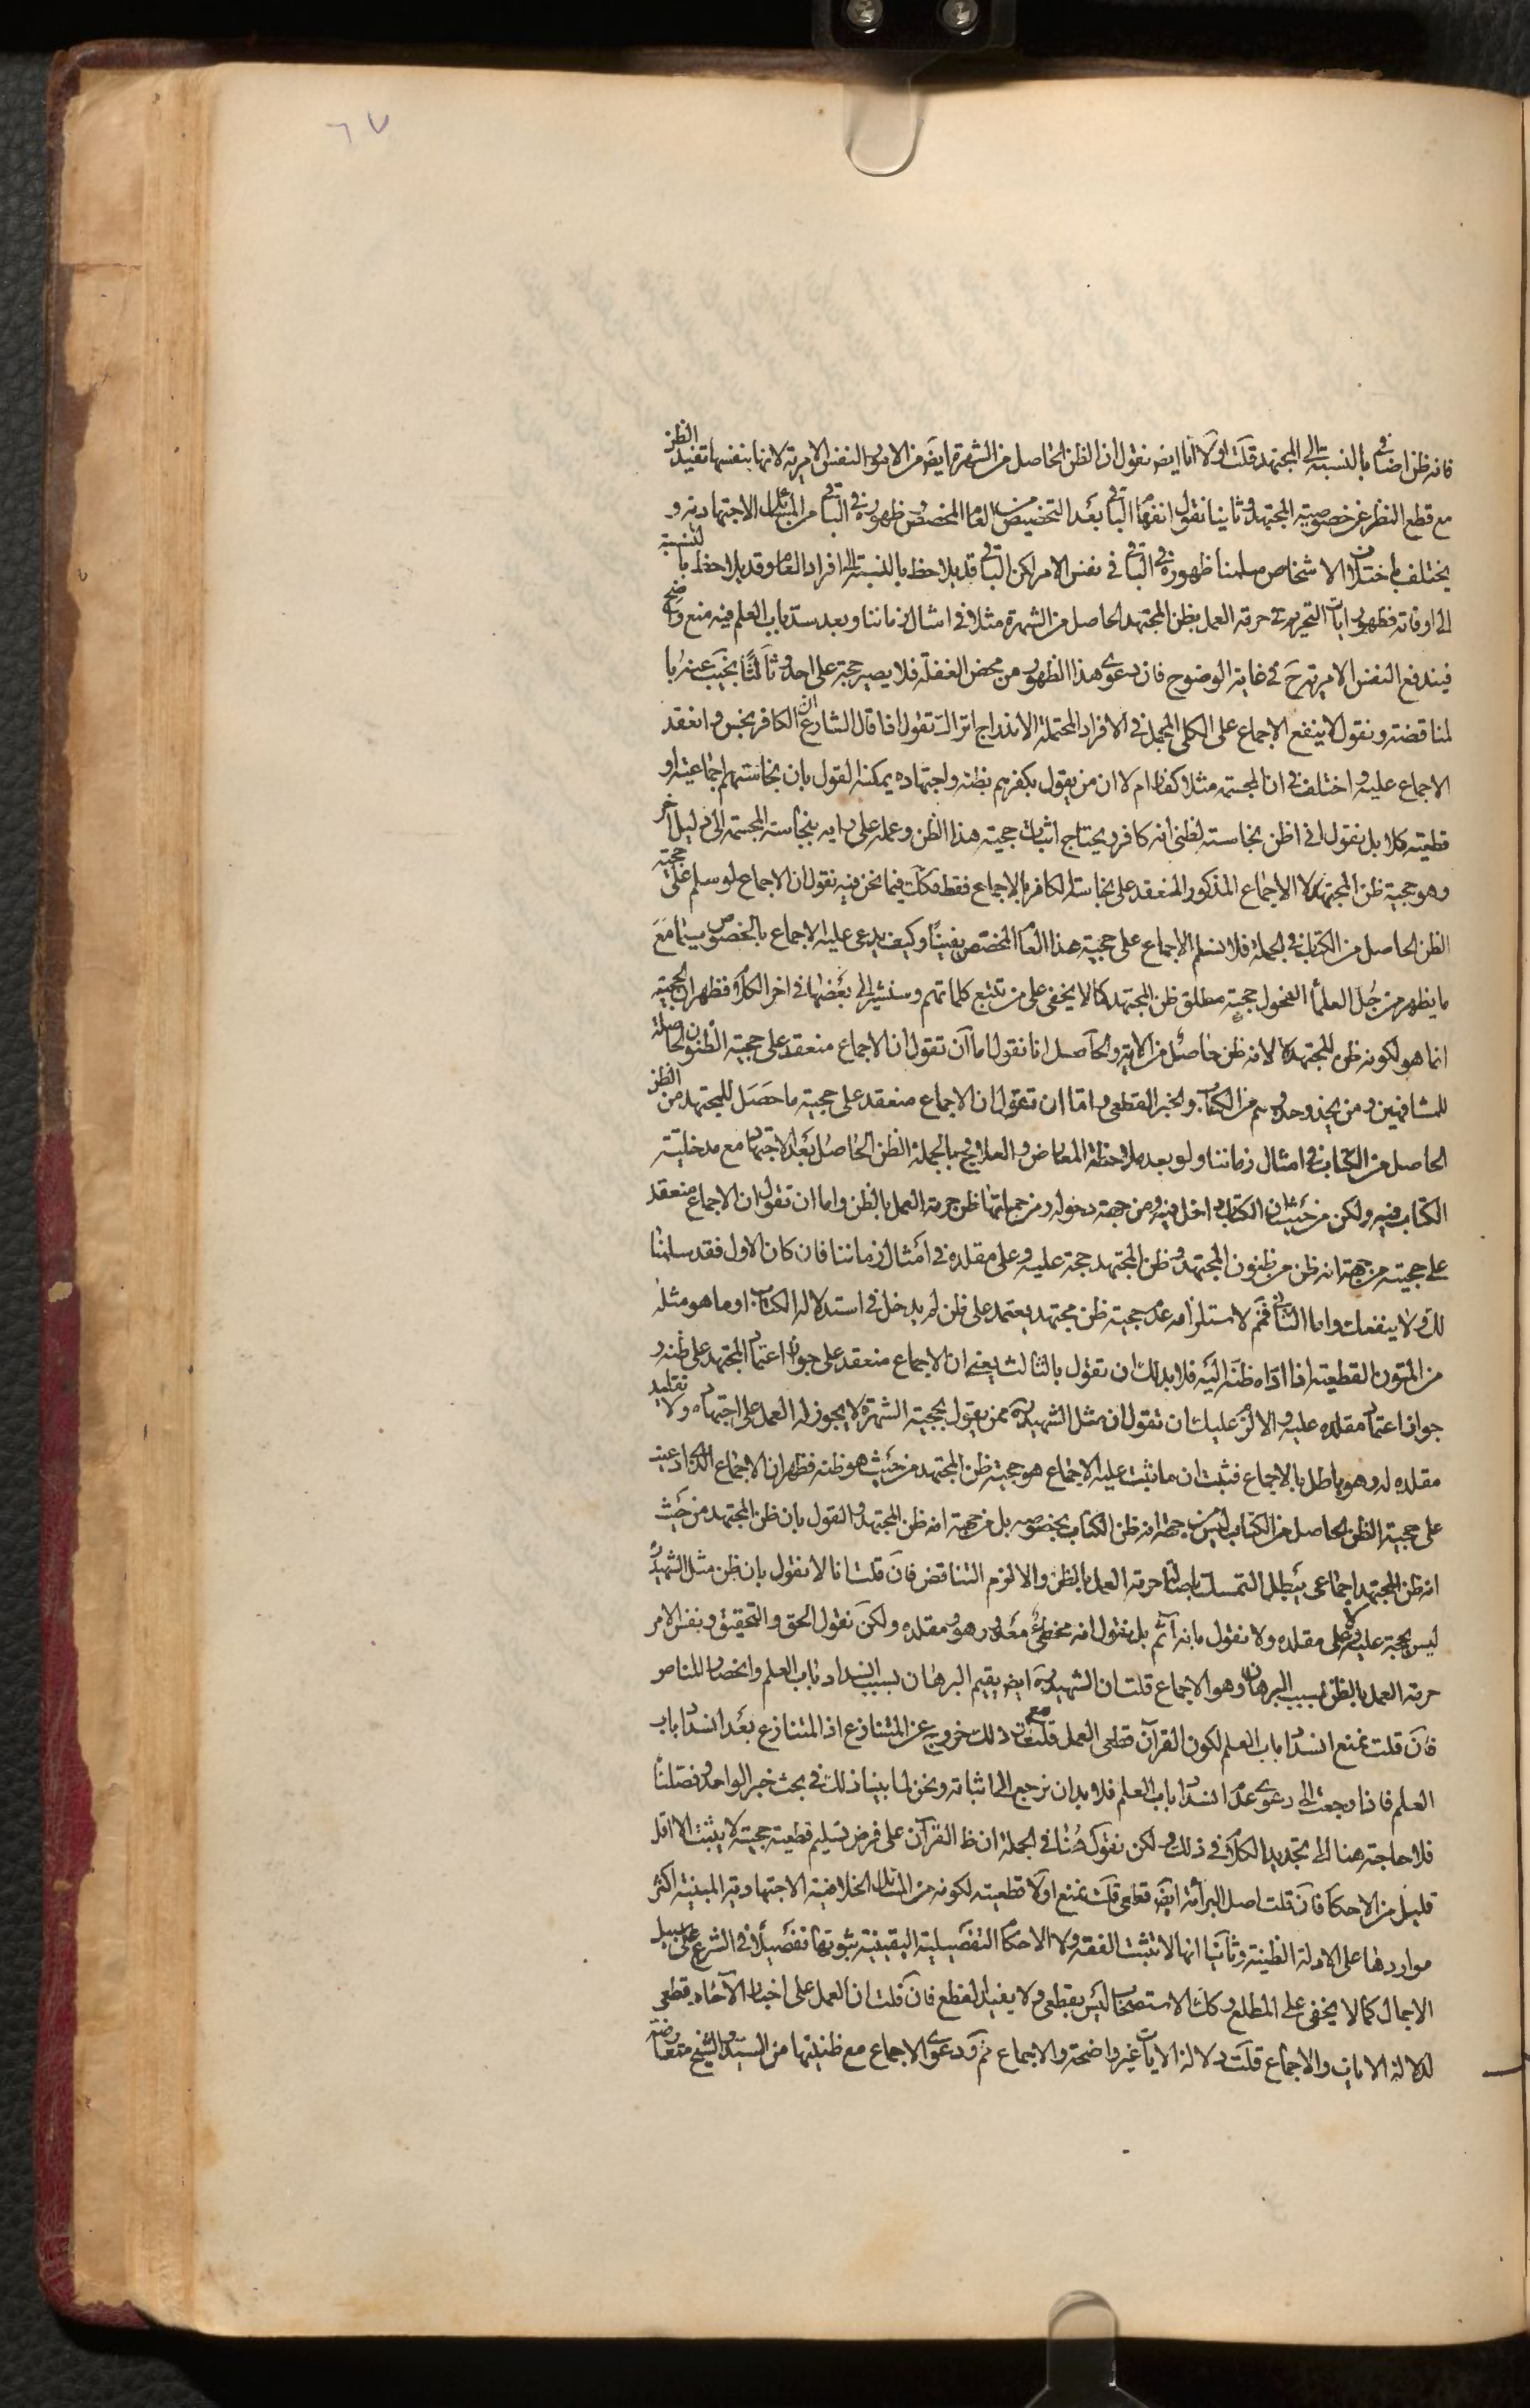 ٦٧
فانه ظن اضافي بالنسبة الى المجتهد قلت اولا انا ايض نقول ان الظن الحاصل من الشهرة ايض من الامور النفس الامرية لانها بنفسها تفيد الظن
مع قطع النظر عن خصوصية المجتهد وثانيا نقول انفهام الباقي بعد التخصيص من العام المخصص وظهوره في الباقي من المسائل الاجتهادية و
يختلف باختلاف الاشخاص سلمنا ظهوره في الباقي في نفس الامر لكن الباقي قد يلاحظ بالنسبة الى افراد العام وقد يلاحظ بالنسبة
الى اوقاته فظهور ايات التحريم في حرمة العمل بظن المجتهد الحاصل من الشهرة مثلا في امثال زماننا وبعد سد باب العلم فيه منع واضح
فيندفع النفس الامرية ح في غاية الوضوح فان دعوى هذا الظهور من محض الغفلة فلا يصير حجة على احد وثالثا نجيب عنه با
لمناقضة ونقول لا ينفع الاجماع على الكلي المجمل في الافراد المحتملة الاندراج اتراك تقول اذا قال الشارع ان الكافر نجس وانعقد
الاجماع عليه واختلف في ان المجسمة مثلا كفار ام لا ان من يقول بكفرهم بظنه واجتهاده يمكنه القول بان نجاستهم اجماعية او
قطعية كلا بل نقول اني اظن نجاسته لظني انه كافر ويحتاج اثبات حجية هذا الظن وعمله على رايه بنجاسة المجسمة الى دليل اخر
وهو حجية ظن المجتهد لا الاجماع المذكور المنعقد على نجاسة الكافر بالاجماع فقط فكك فيما نحن فيه نقول ان الاجماع لو سلم على حجية
الظن الحاصل من الكتاب في الجملة فلا نسلم الاجماع على حجية هذا العام المخصص يقينا وكيف يدعى عليه الاجماع بالخصوص سيما مع
ما يظهر من جل العلماء الفحول حجية مطلق ظن المجتهد كما لا يخفى على من تتبع كلماتهم وسنشير الى بعضها في اخر الكلام فظهر ان الحجية
انما هو لكونه ظن للمجتهد لا لانه ظن حاصل من الاية والحاصل انا نقول اما ان تقول ان الاجماع منعقد على حجية الظنون الحاصلة
للمشافهين ومن يحذو حذوهم من الكتاب والخبر القطعي واما ان تقول ان الاجماع منعقد على حجية ما حصل للمجتهد من الظن
الحاصل من الكتاب في امثال زماننا ولو بعد ملاحظة المعارض والعلاج وبالجملة الظن الحاصل بعد الاجتهاد مع مدخلية
الكتاب فيه ولكن من حيث ان الكتاب داخل فيه ومن جهة دخوله ومن جملتها ظن حرمة العمل بالظن واما ان تقول ان الاجماع منعقد
على حجيته من جهة انه ظن من ظنون المجتهد وظن المجتهد حجة عليه وعلى مقلده في امثال زماننا فان كان الاول فقد سلمنا
لك ولا ينفعك واما الثاني فنم لاستلزامه عدم حجية ظن مجتهد يعتمد على ظن لم يدخل في استدلاله الكتاب او ما هو مثله
من المتون القطعية اذا اداه ظنه اليه فلا بد لك ان تقول بالثالث يعني ان الاجماع منعقد على جواز اعتماد المجتهد على ظنه و
جواز اعتماد مقلده عليه والا لزم عليك ان تقول ان مثل الشهيد ره ممن يقول بحجية الشهرة لا يجوز له العمل على اجتهاده ولا تقليد
مقلده له وهو باطل بالاجماع فثبت ان ما ثبت عليه الاجماع هو حجية ظن المجتهد من حيث هو ظنه فظهر ان الاجماع الذي ادعيت
على حجية الظن الحاصل من الكتاب ليس من جهة انه ظن الكتاب بخصوصه بل من جهة انه ظن المجتهد والقول بان ظن المجتهد من حيث
انه ظن المجتهد اجماعي يبطل التمسك باصالة حرمة العمل بالظن والا لزم التناقض فان قلت انا لا نقول بان ظن مثل الشهيد ره
ليس بحجة عليه ولا على مقلده ولا نقول بانه آثم بل نقول انه مخطئ معذور هو ومقلده ولكن نقول الحق والتحقيق ونفس الامر
حرمة العمل بالظن بسبب البرهان وهو الاجماع قلت ان الشهيد ره ايض يقيم البرهان بسبب انسداد باب العلم وانحصار المناص
فان قلت نمنع انسداد باب العلم لكون القرآن قطعي العمل قلت مع ان ذلك خروج عن المتنازع اذ المتنازع بعد انسداد باب
العلم فاذا رجعت الى دعوى عدم انسداد باب العلم فلا بد ان نرجع الى اثباته ونحن لما بينا ذلك في بحث خبر الواحد وفصلنا
فلا حاجة هنا الى تجديد الكلام في ذلك ولكن نقول هنا في الجملة ان ظ القرآن على فرض تسليم قطعية حجيته لا يثبت الا اقل
قليل من الاحكام فان قلت اصل البرائة ايض قطعي قلت نمنع اولا قطعيته لكونه من المسائل الخلافية الاجتهادية المبنية اكثر
مواردها على الادلة الظنية وثانيا انها لا تثبت الفقه ولا الاحكام التفصيلية اليقينية ثبوتها تفصيلا في الشرع على سبيل
الاجمال كما لا يخفى على المطلع وكك الاستصحاب ليس بقطعي ولا يفيد القطع فان قلت ان العمل على اخبار الآحاد قطعي
لدلالة الايات والاجماع قلت دلالة الايات غير واضحة والاجماع نم ودعوى الاجماع مع ظنيتها من السيد والشيخ متعارضة